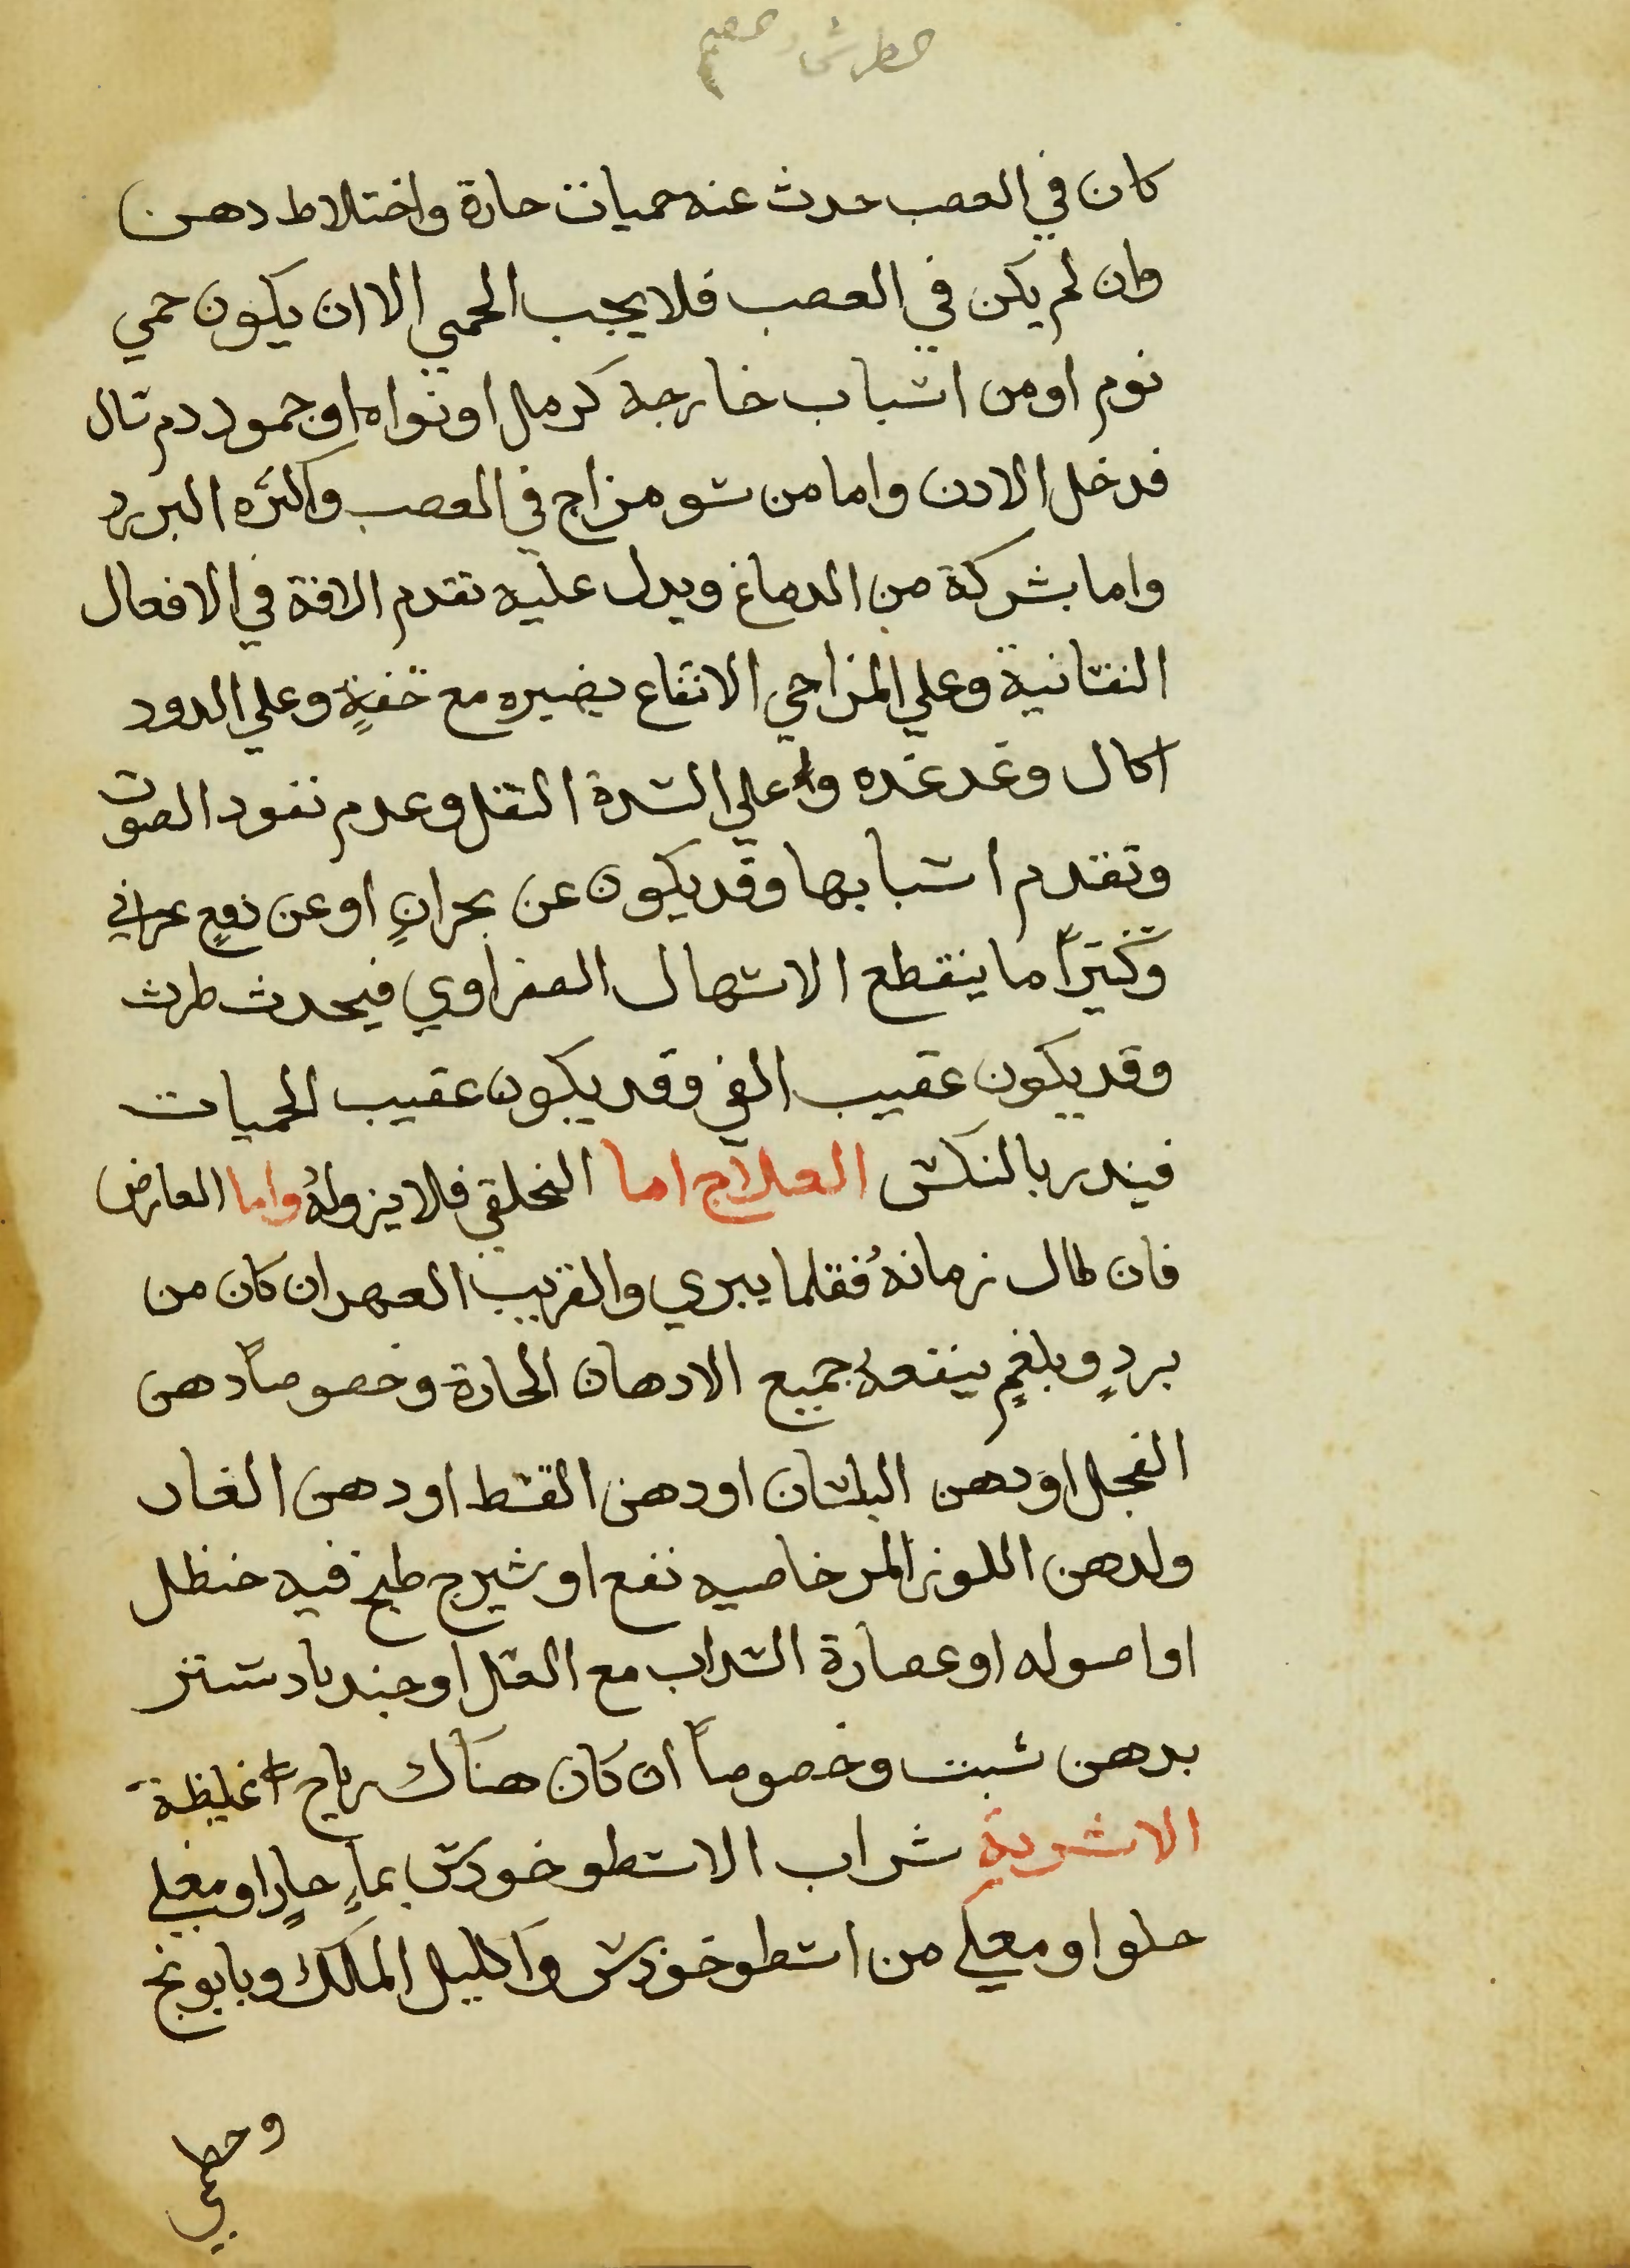 كان في العصب حدث عنه حميات حارة واختلاط دهن
وان لم يكن في العصب فلا يجب الحمي الا ان يكون حمي
نوم او من اسباب خارجة كرمل او نواه او جمود دم سال
فدخل الادن واما من سو مزاج في العصب واكثره البرد
واما بشركة من الدماغ ويدل عليه تقدم الافة في الافعال
النفسانية وعلي المزاجي الانتفاع بضيره مع خفةٍ وعلي الدود
اكال وغدغده وعلي السدة الثقل وعدم نفود الصوت
وتقدم اسبابها وقد يكون عن بحرانٍ او عن دفعٍ بحراني
وكثيراً ما ينقطع الاسهال الصفراوي فيحدث طرش
وقد يكون عقيب القي وقد يكون عقيب الحميات
فيندر بالنكس العلاج اما الخلقي فلا يزوله واما العارض
فان طال زمانهُ فقلما يبري والقريب العهد ان كان من
بردٍ وبلغمٍ ينفعهُ جميع الادهان الحارة وخصوصاً دهن
الفجل او دهن البلسان او دهن القسط او دهن الغار
ولدهن اللوز المر خاصيه نفع او شيرج طبخ فيه حنظل
او اصوله او عصارة السداب مع العسل او جندبادستر
بدهن شبت وخصوصاً ان كان هناك رياح غليظة
الاشربة شراب الاسطوخودس بماءٍ حارٍ او مغلي
حلو او مغلي من اسطوخودس واكليل الملك وبابونج
وخطمي